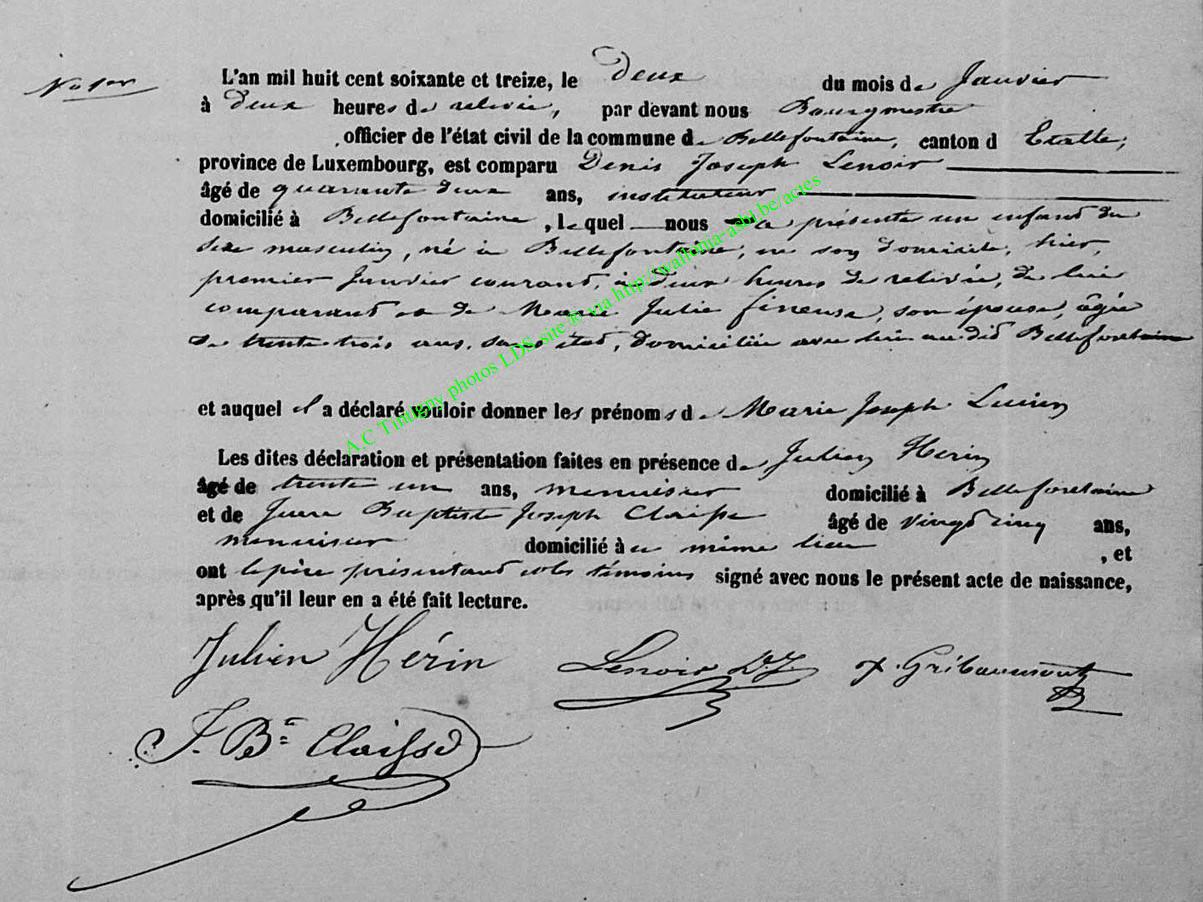 No 1er
L'an mil huit cent soixante et treize, le deux du mois de Janvier
à deux heures de relevée, par devant nous Bourgmestre
, officier de l'état civil de la commune de Bellefontaine, canton d Etalle,
province de Luxembourg, est comparu Denis Joseph Lenoir
âgé de quarante deux ans, instituteur
domicilié à Bellefontaine, lequel nous a présenté un enfant du
sexe masculin, né à Bellefontaine, en son domicile, hier,
premier Janvier courant, à deux heures de relevée, de lui
comparant et de Marie Julie Fineuse, son épouse, âgée
de trente trois ans, sans état, domiciliée avec lui au dit Bellefontaine
et auquel il a déclaré vouloir donner les prénoms de Marie Joseph Lucien
Les dites déclaration et présentation faites en présence de Julien Hérin
âgé de trente un ans, menuisier domicilié à Bellefontaine
et de Baptiste Joseph Claisse âgé de vingt cinq ans,
menuisier domicilié à même lieu , et
ont le père présentant et les témoins signé avec nous le présent acte de naissance,
après qu'il leur en a été fait lecture.
Julien Hérin Lenoir D.J. Gribaumont
J. Bte Claisse
A.C Tintigny photos LDS site fs via http://wallonia-asbl.be/actes